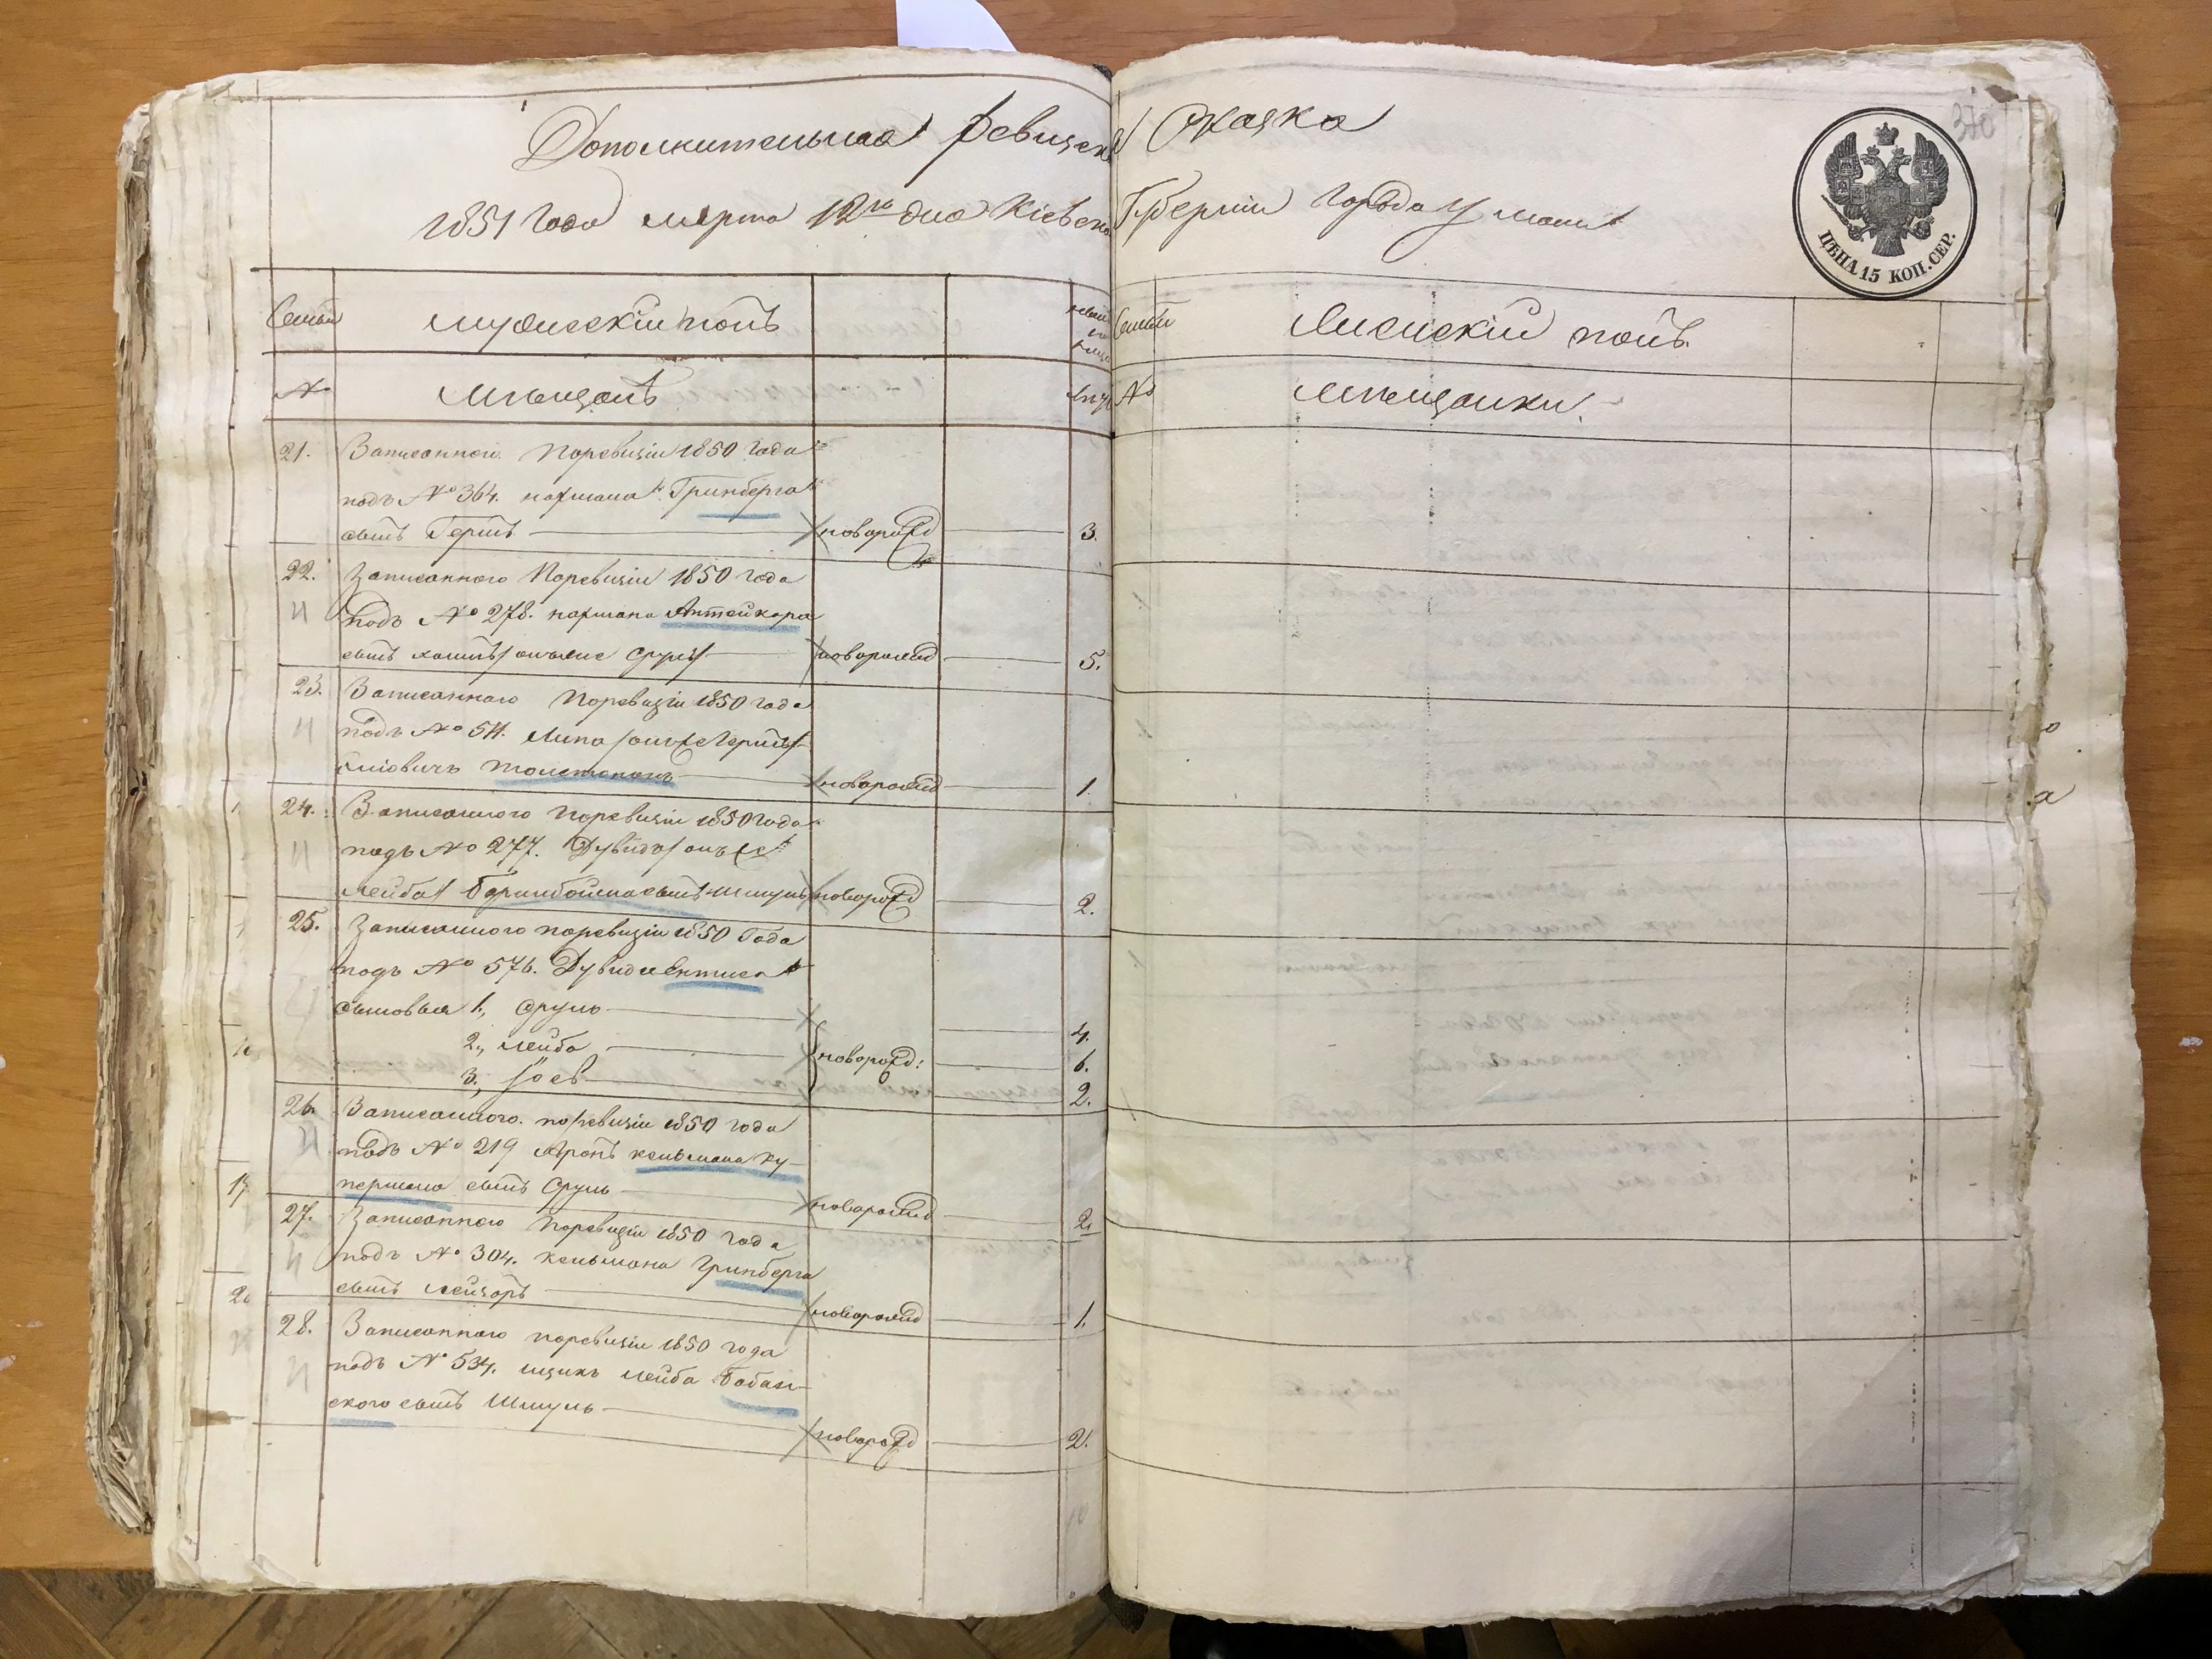 Дополнительная ревизска Сказка
1851 года марта 12го дня Кіевской Губерніи города Умани
Семьи мужескій полъ
Семьи Женскій полъ
№ мѣщанъ
№ мѣщанки
ЦѢНА 15 КОП. СЕР.
21. Записанного поревизіи 1850 года
подъ № 364. нахмана Гринберга
сынъ Гершъ новорожд 3.
22. Записанного поревизіи 1850 года
подъ № 278. нахмана Аптейкара
сынъ онъже Сруль новорожд 5.
23. Записаннаго поревизіи 1850 года
подъ № 511. Липа онъже Гершъ
толстоногъ новорожд 1.
24. Записанного поревизіи 1850 года
подъ № 277. Дувида онъже
Лейба Баринбойма сынъ Шмуль новорожд 2.
25. Записанного поревизіи 1850 Года
подъ № 576. Дувид
сыновья 1, Сруль 4.
2, Лейба новорожд: 6.
3, 2.
26. Записанного поревизіи 1850 года
подъ № 219 Аронъ кельмана Ку-
пермана сынъ Сруль новорожд 2.
27. Записанного поревизіи 1850 года
подъ № 304. Кельмана Гринберга
сынъ Лейзоръ новорожд 1.
28. Записанного поревизіи 1850 года
подъ № 534. ицикъ Лейба Бабан-
ского сынъ Шмуль новорожд 2.